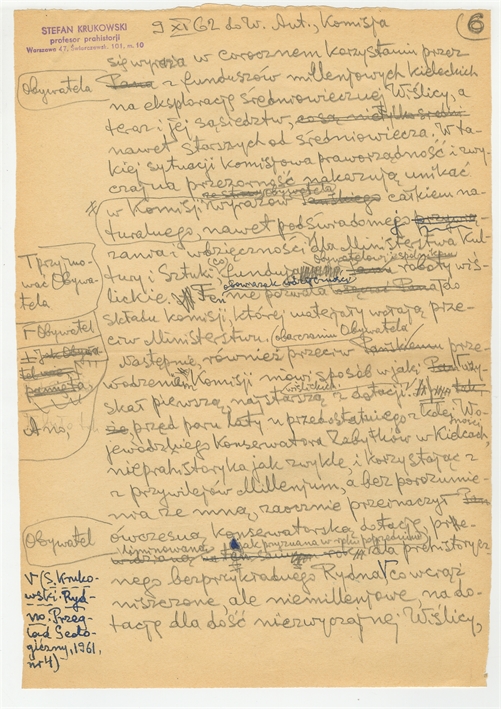 STEFAN KRUKOWSKI
profesor prehistorji
Warszawa 47, Świerczewsk. 101, m. 10
9 XI 62 do W. Ant., Komisja
6
się wyraża w corocznem korzystaniu przez
Obywatela
Pana z funduszów millenjowych Kieleckich
na eksplorację średniowiecznej Wiślicy, a
teraz i jej sąsiedztw,
nawet starszych od średniowiecza. W ta-
kiej sytuacji komisjowa praworządność i zwy-
czajna przezorność nakazują unikać
ze strony obywatela
w Komisji wyrazów całkiem na-
turalnego, nawet podświadomego
zania wdzięczności dla Ministerstwa Kul-
tury i Sztuki co funduje roboty wiś-
lickie. Ten nie pozwala do
składu Komisji, której materjały wołają prze-
ciw Ministerstwu.
obarczaniu Obywatela
Następnie, również przeciw Pańskiemu prze-
wodzeniu Komisji mówi sposób w jaki
skał pierwszą, najstarszą z dotacji
przed paru laty u przedostatniego z kolei Wo-
jewódzkiego Konserwatora Zabytków w Kielcach,
nieprahistoryka jak zwykle, i korzystając z
przywilejów Millenjum, a bez porozumie-
nia ze mną, zaocznie przeznaczył
Obywatel
ówczesną konserwatorską dotację,
jak przyznana w roku poprzednim
dla prehistorycz
nego bezprzykładnego Rydna V co wciąż
niszczone, ale niemillenjowe, na do-
tację dla dość niezwyczajnej Wiślicy,
Obywatel
A no,
V (S. Kruko-
wski: Ryd-
no. Przeg-
ląd Geolo-
giczny, 1961,
nr 4)